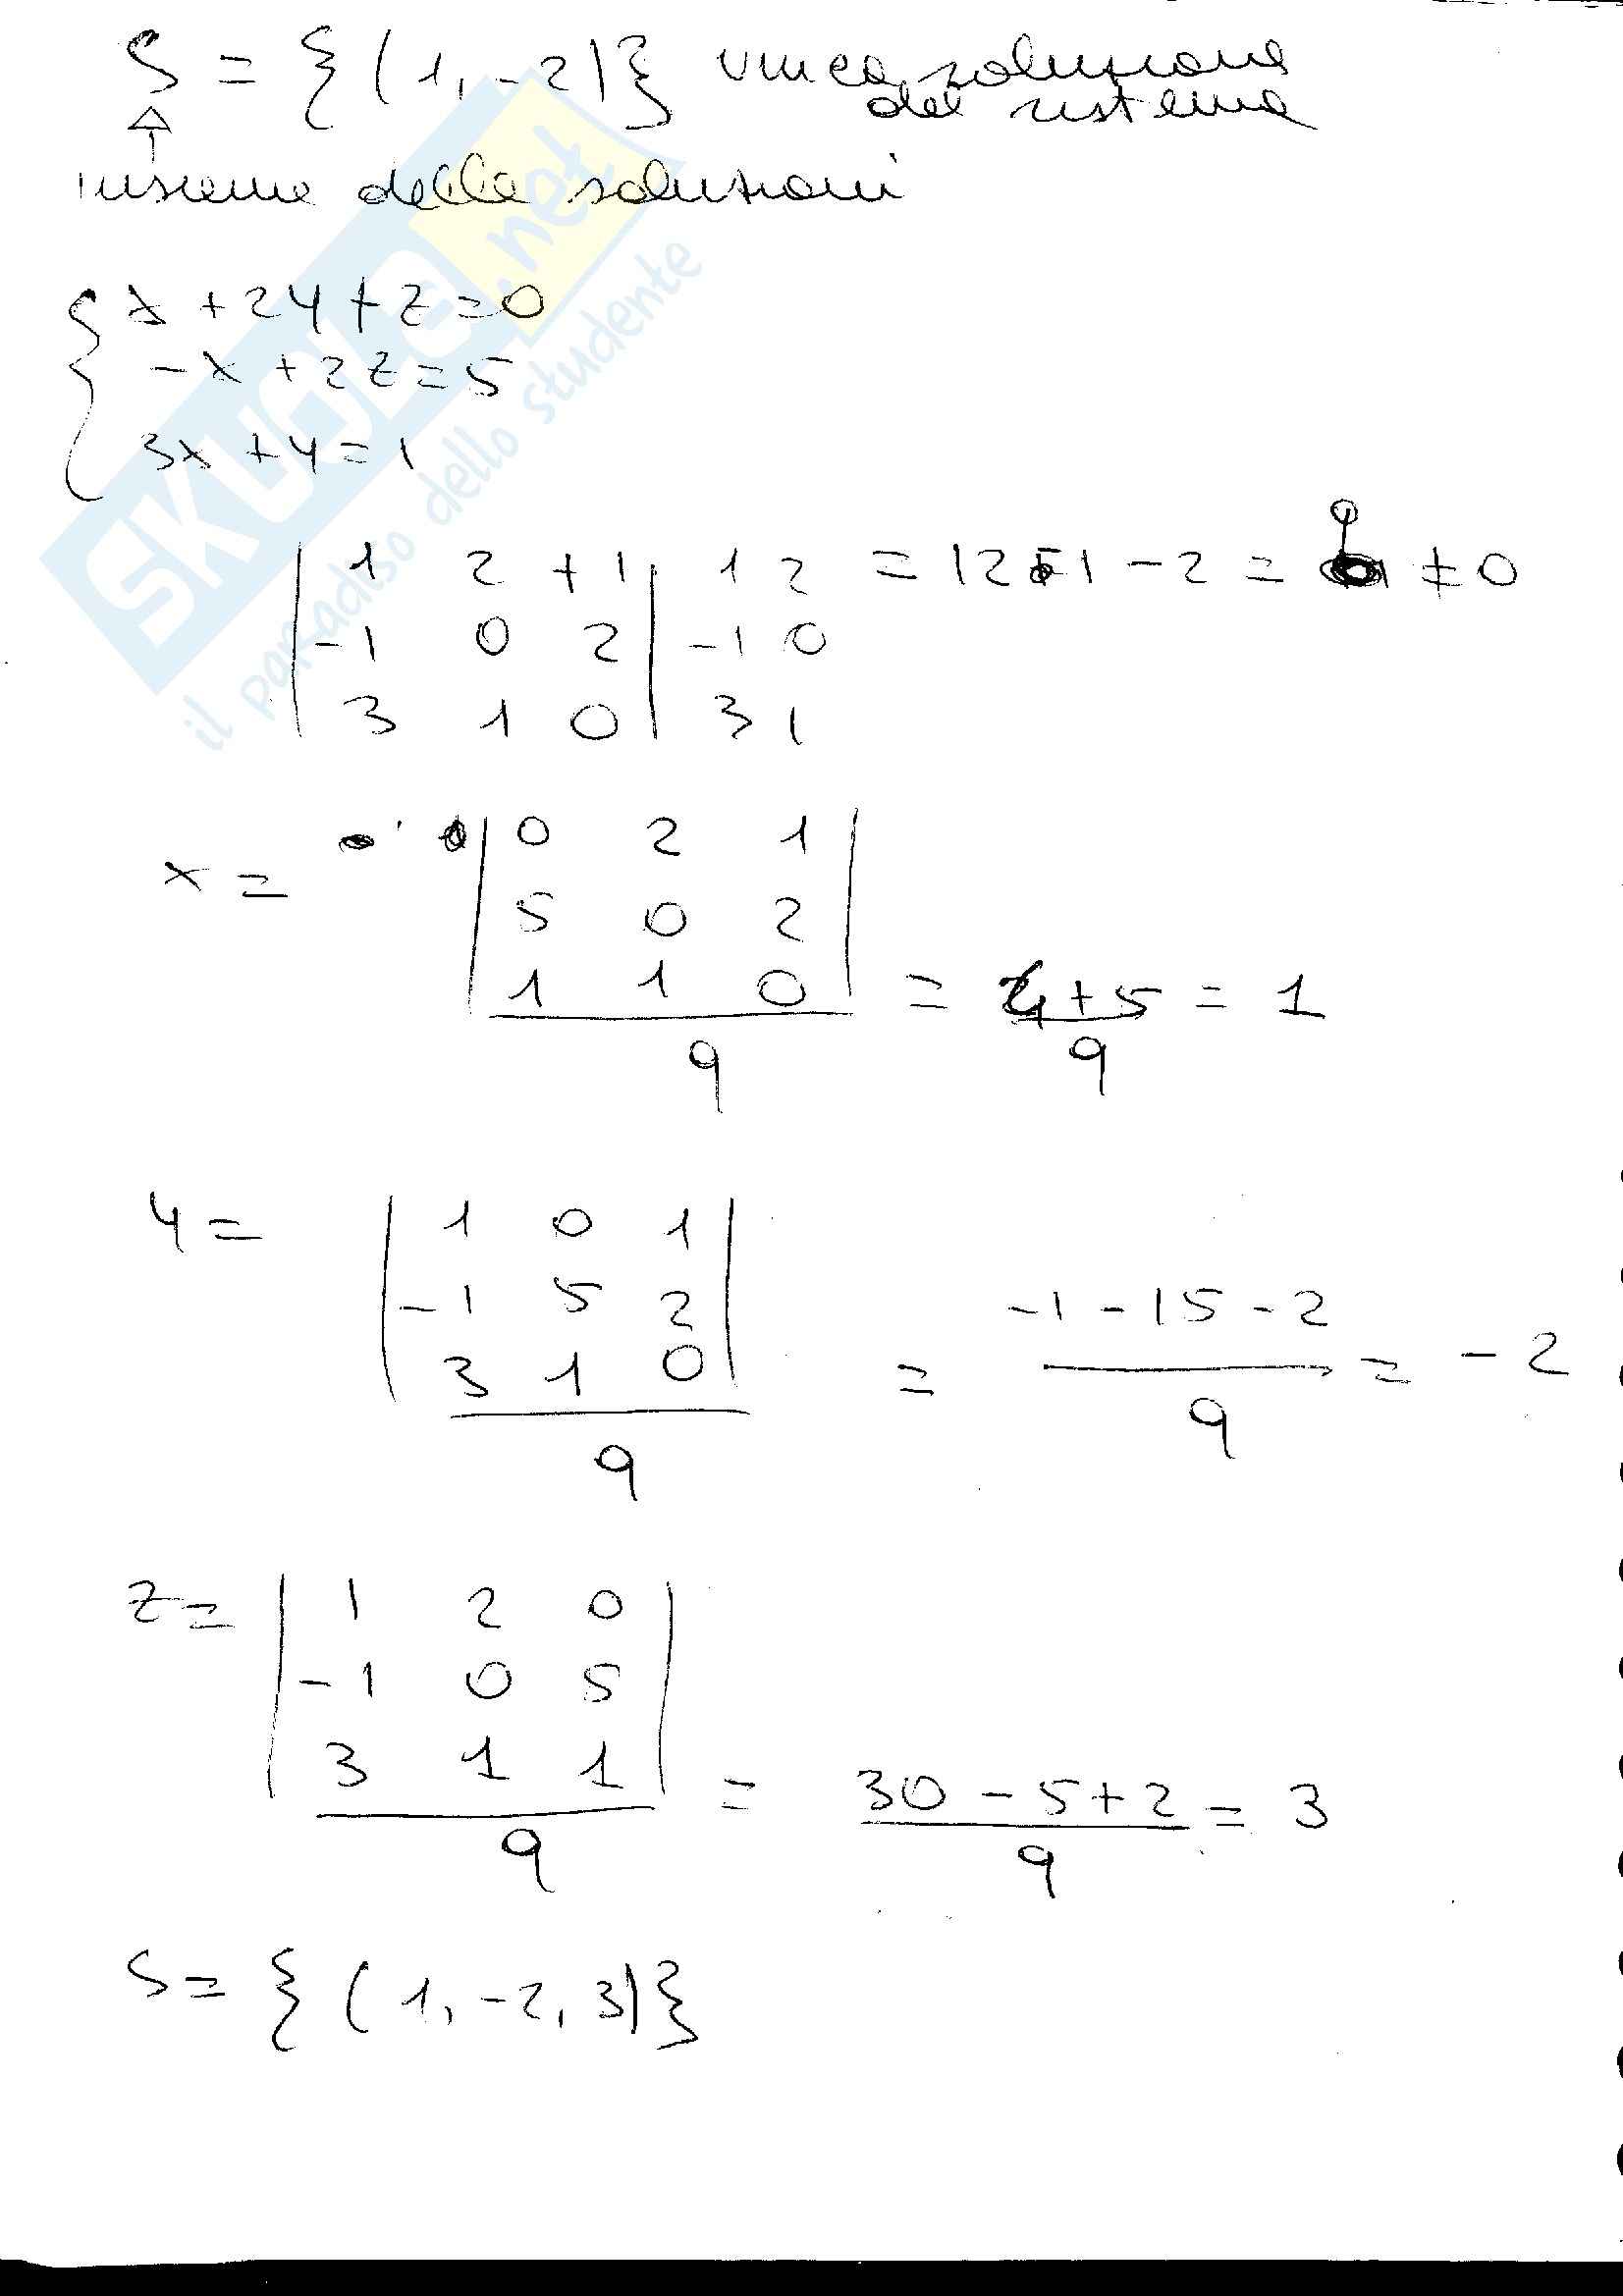 S = {(1, -2)} unica soluzione
del sistema
insieme delle soluzioni
x + 2y + z = 0
-x + 2z = 5
3x + y = 1
| 1 2 +1 | 1 2 = 12 - 1 - 2 = 9 ≠ 0
| -1 0 2 | -1 0
| 3 1 0 | 3 1
x = | 0 2 1 |
| 5 0 2 |
| 1 1 0 | = 4 + 5 = 1
9 9
y = | 1 0 1 |
| -1 5 2 | -1 - 15 - 2
| 3 1 0 | = = -2
9 9
z = | 1 2 0 |
| -1 0 5 |
| 3 1 1 | = 30 - 5 + 2 = 3
9 9
S = {(1, -2, 3)}
SKUOLA.net
il paradiso dello studente